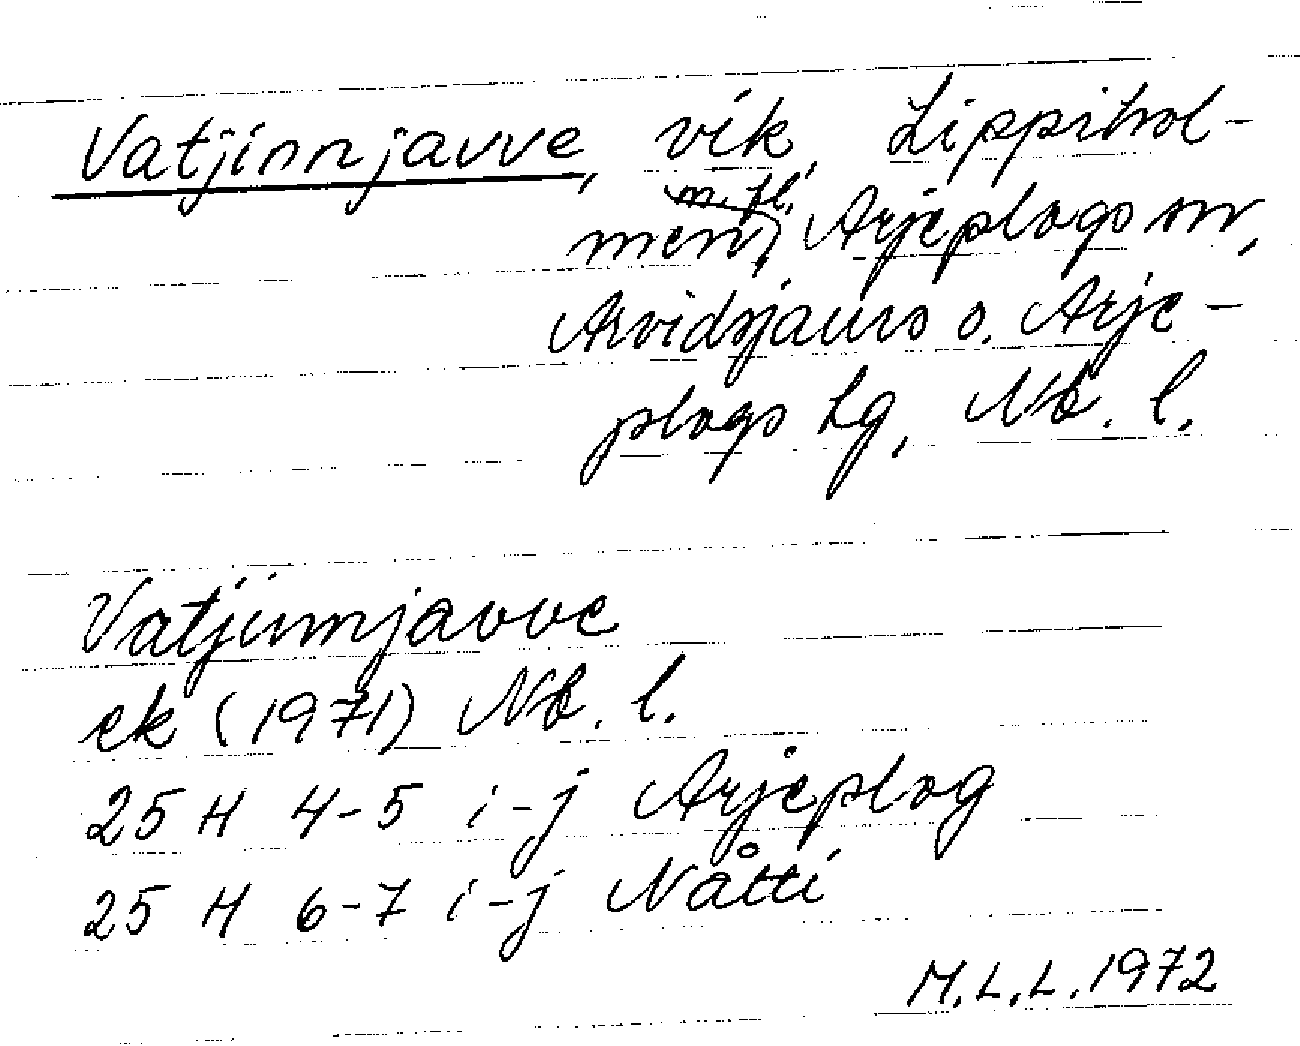 Vatjinnjavve, vik, Lippihol-
men, m. fl. Arjeplogs sn,
Arvidsjaurs o. Arje-
plogs tg, Nb. l.
Vatjinnjavve
ek (1971) Nb. l.
25 H 4-5 i-j Arjeplog
25 H 6-7 i-j Nåtti
M.L.L. 1972